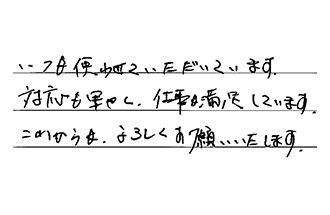 いつも使わせていただいています.
対応も早く、仕事も満足しています.
これからも、よろしくお願いいたします.